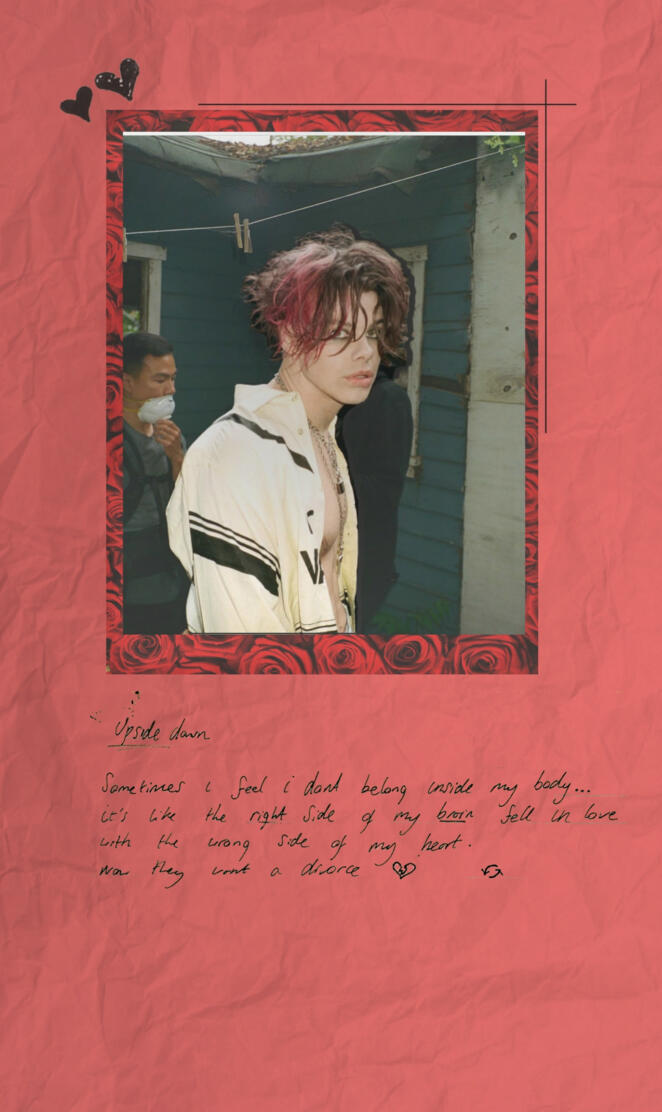 Upside down
Sometimes i feel i dont belong inside my body...
it's like the right side of my brain fell in love
with the wrong side of my heart.
now they want a divorce